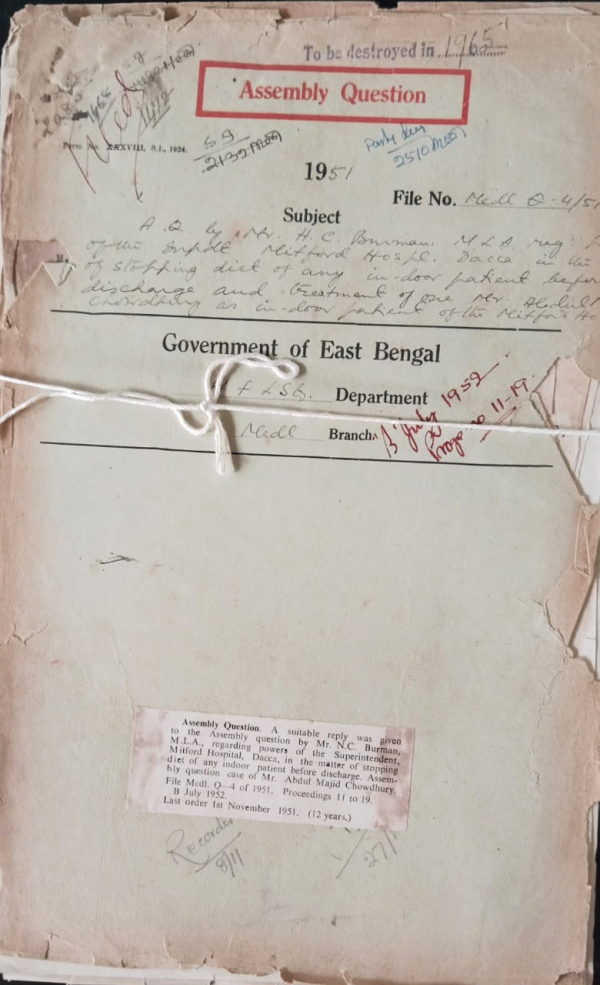 To be destroyed in 1965
Assembly Question
Medl
Form No. XXXVIII, S.I., 1924.
59
1951
File No. Medl Q-4/51
Subject
A.Q. by Mr. H. C. Burman, M L A, reg:
of the Supdt Mitford Hospl. Dacca in the
of stopping diet of any in-door patient before
discharge and treatment of one Mr. Abdul
Chowdhury as in-door patient of the Mitford Ho
Government of East Bengal
Department
Medl Branch.
B July 1952
Progs no 11-19.
Assembly Question. A suitable reply was given
to the Assembly question by Mr. N.C. Burman,
M.L.A., regarding powers of the Superintendent,
Mitford Hospital, Dacca, in the matter of stopping
diet of any indoor patient before discharge. Assem-
bly question case of Mr. Abdul Majid Chowdhury.
File Medl. Q—4 of 1951. Proceedings 11 to 19.
B July 1952.
Last order 1st November 1951. (12 years.)
Recorder
8/11
27/